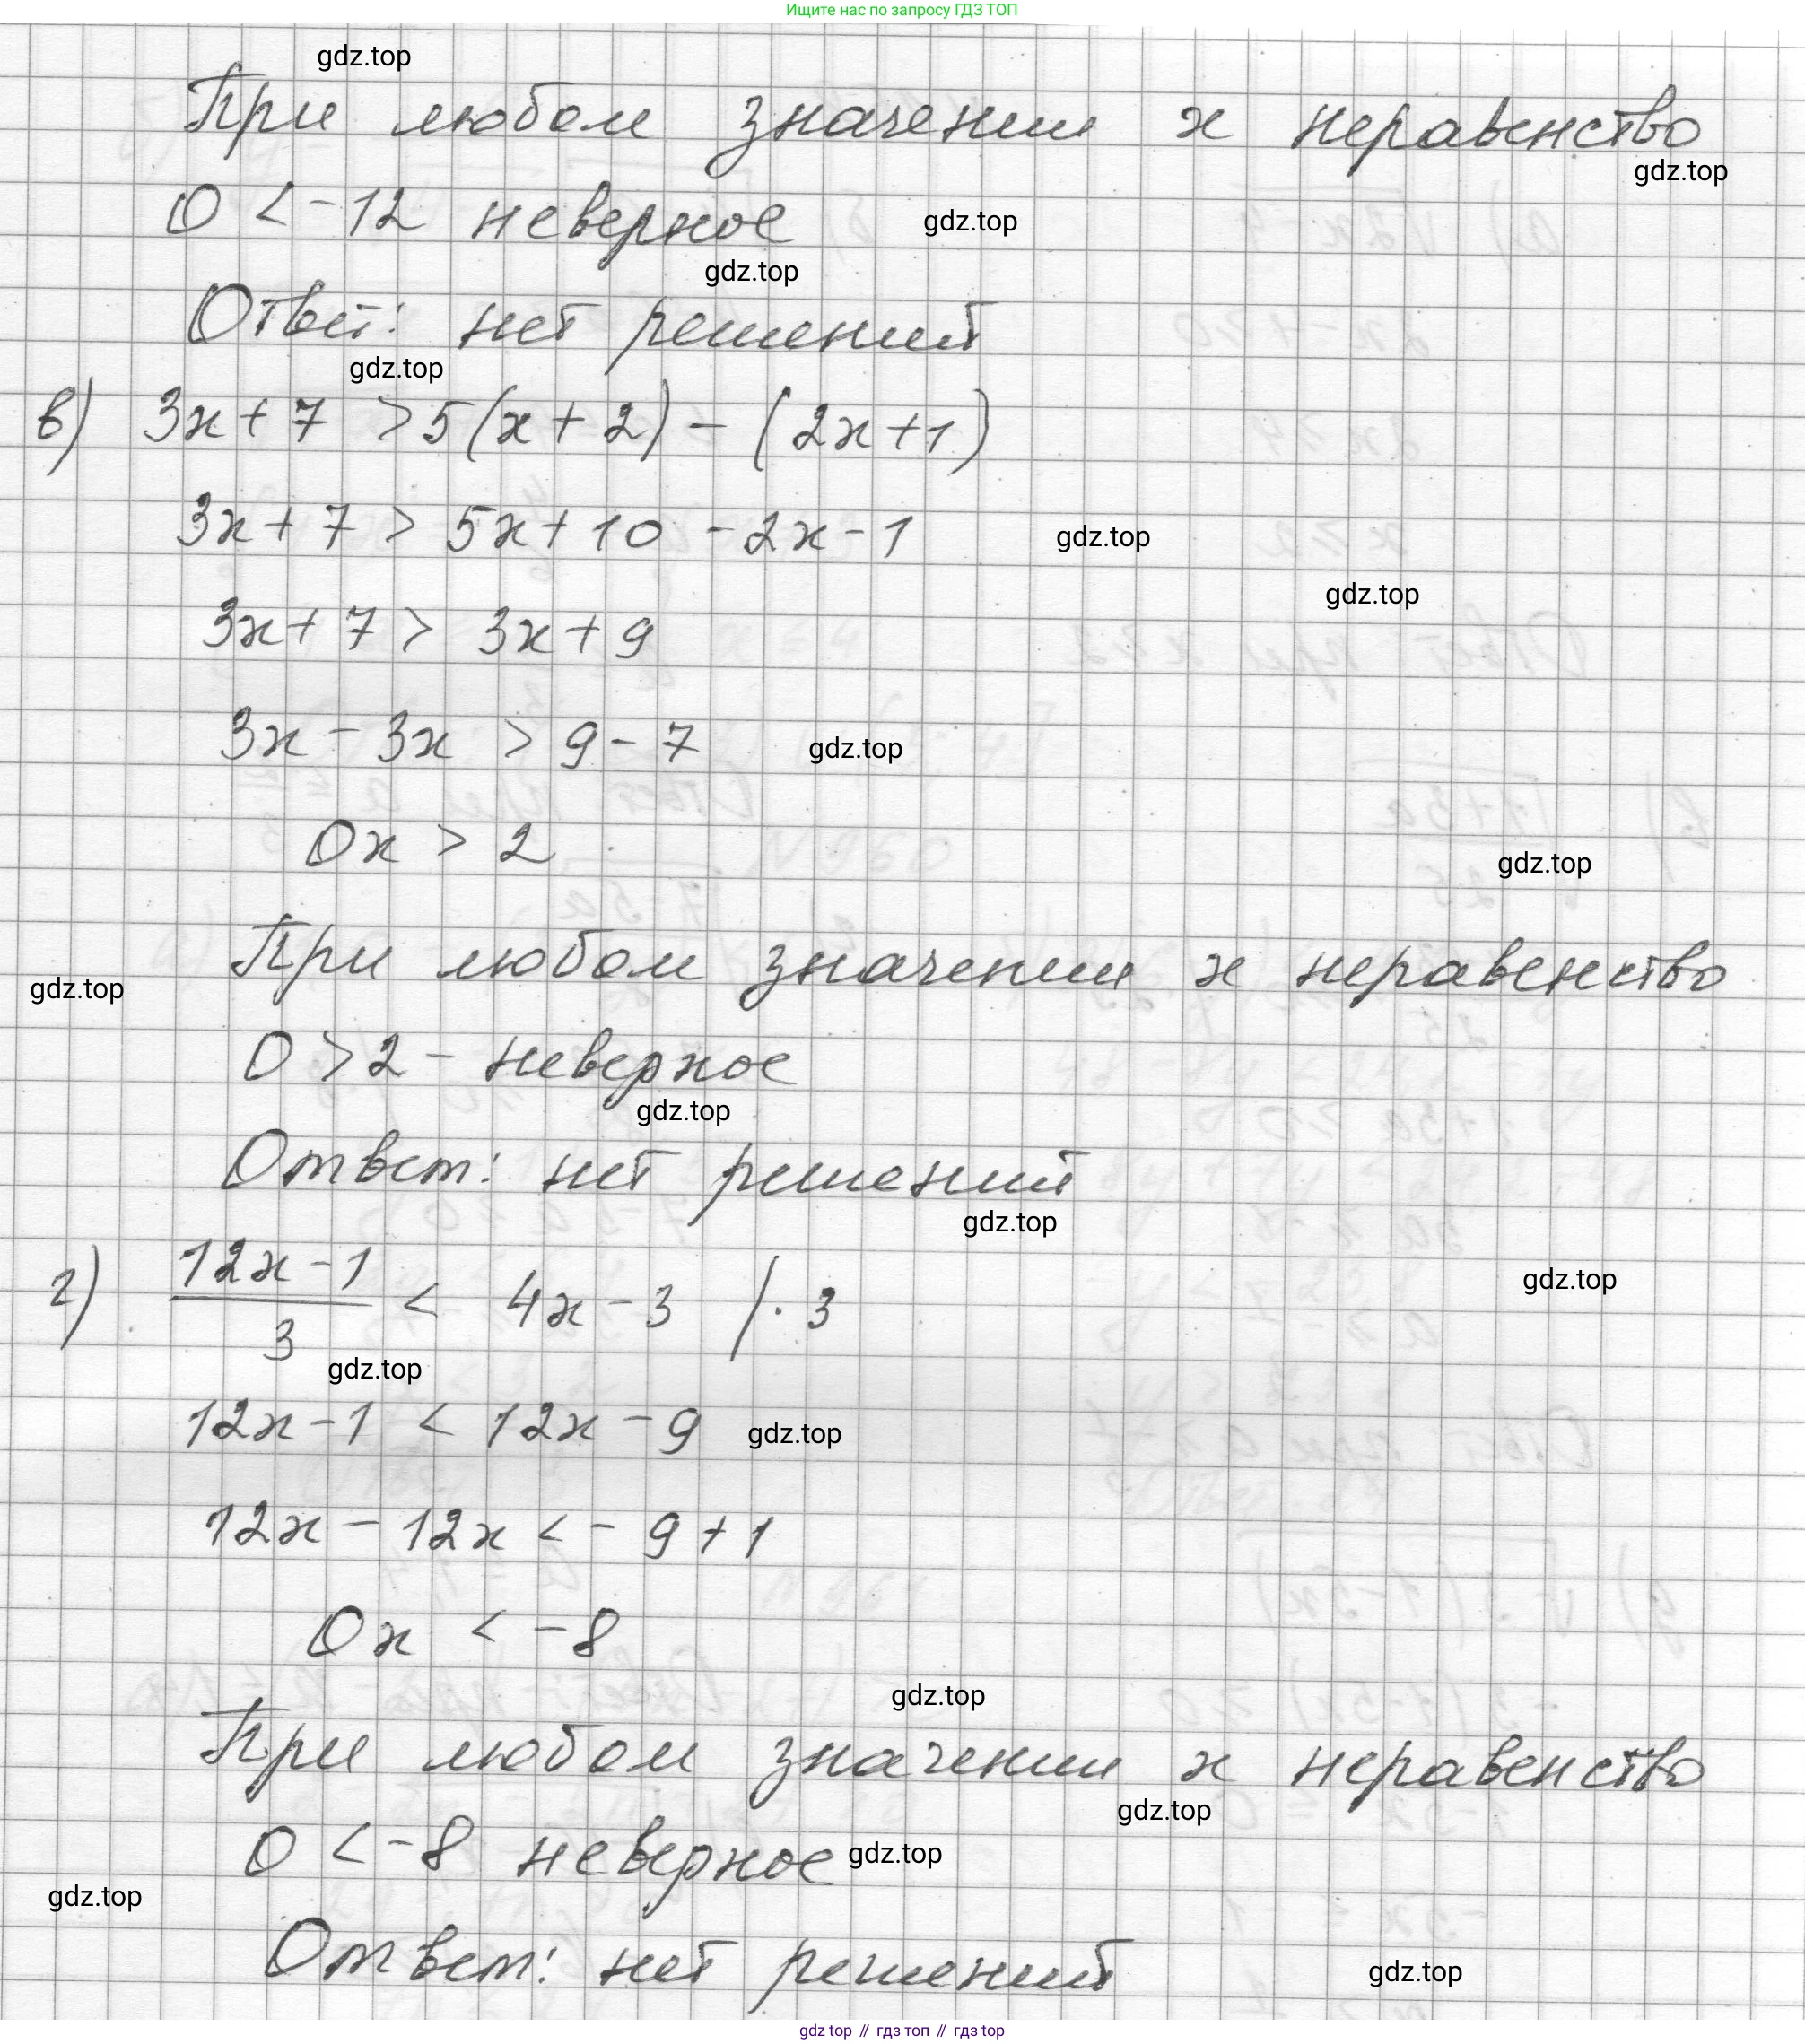 Ищите нас по запросу ГДЗ ТОП
gdz.top
При любом значении x неравенство
gdz.top
0 < -12 неверное
gdz.top
gdz.top
Ответ: нет решений
gdz.top
в) 3x + 7 > 5(x + 2) - (2x + 1)
3x + 7 > 5x + 10 - 2x - 1
gdz.top
gdz.top
3x + 7 > 3x + 9
3x - 3x > 9 - 7
gdz.top
0x > 2
gdz.top
При любом значении x неравенство
gdz.top
0 > 2 - неверное
gdz.top
Ответ: нет решений
gdz.top
г) (12x - 1)/3 < 4x - 3 / · 3
gdz.top
gdz.top
12x - 1 < 12x - 9
gdz.top
12x - 12x < - 9 + 1
0x < -8
gdz.top
При любом значении x неравенство
gdz.top
0 < -8 неверное
gdz.top
gdz.top
Ответ: нет решений
gdz.top
gdz top // гдз топ // gdz top